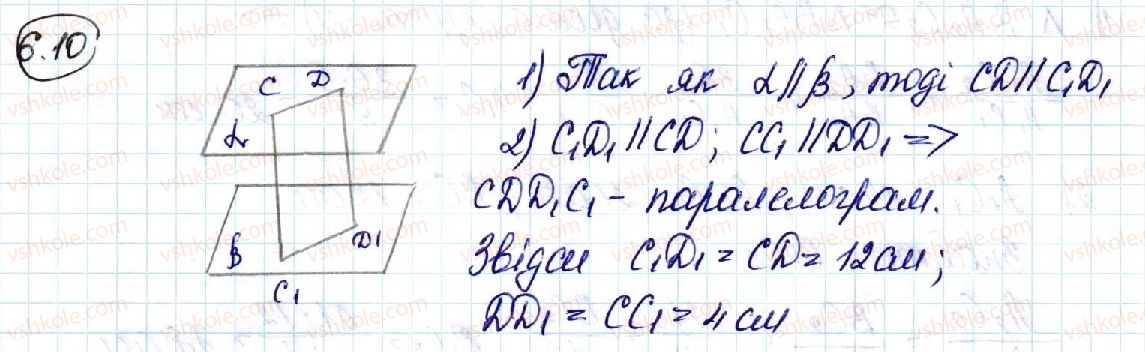 6.10
1) Так як α∥β, тоді CD∥C₁D₁
2) C₁D₁∥CD; CC₁∥DD₁ =>
CDD₁C₁ - паралелограм.
Звідси C₁D₁ = CD = 12см;
DD₁ = CC₁ = 4 см
C D
α
D1
B
C₁
vshkole.com